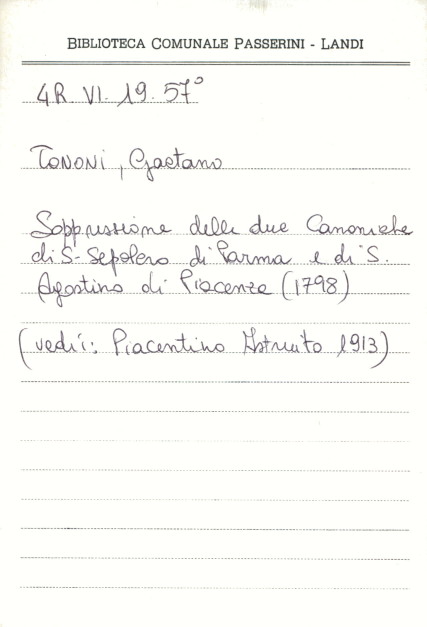 BIBLIOTECA COMUNALE PASSERINI - LANDI
4R. VI. 19. 57°
TONONI, Gaetano
Soppressione delle due Canoniche
di S. Sepolcro di Parma e di S.
Agostino di Piacenza (1798)
(vedi: Piacentino Istruito 1913)